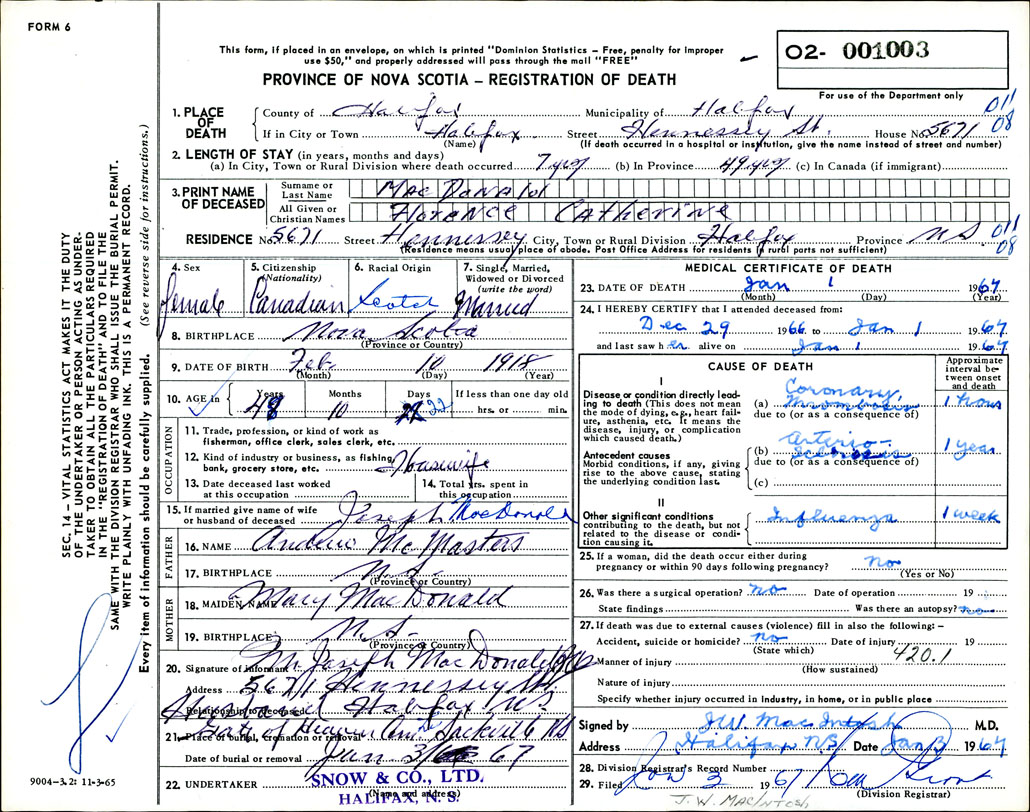 FORM 6
This form, if placed in an envelope, on which is printed "Dominion Statistics – Free, penalty for improper
use $50," and properly addressed will pass through the mail "FREE"
PROVINCE OF NOVA SCOTIA – REGISTRATION OF DEATH
O2- 001003
For use of the Department only
1. PLACE OF DEATH County of Halifax Municipality of Halifax 011
If in City or Town Halifax Street Hennessey St. House No. 5671 08
(Name) (If death occurred in a hospital or institution, give the name instead of street and number)
2. LENGTH OF STAY (in years, months and days)
(a) In City, Town or Rural Division where death occurred 7 yrs (b) In Province 49 yrs (c) In Canada (if immigrant)
3. PRINT NAME OF DECEASED Surname or Last Name MacDonald
All Given or Christian Names Florance Catherine
RESIDENCE No. 5671 Street Hennessey City, Town or Rural Division Halifax Province N.S. 011 08
(Residence means usual place of abode. Post Office Address for residents in rural parts not sufficient)
4. Sex 5. Citizenship (Nationality) 6. Racial Origin 7. Single, Married, Widowed or Divorced (write the word)
female Canadian Scotch Married
8. BIRTHPLACE Nova Scotia
(Province or Country)
9. DATE OF BIRTH Feb 10 1918
(Month) (Day) (Year)
10. AGE in Years Months Days If less than one day old
48 10 22 hrs. or min.
OCCUPATION
11. Trade, profession, or kind of work as
fisherman, office clerk, sales clerk, etc.
12. Kind of industry or business, as fishing,
bank, grocery store, etc. Housewife
13. Date deceased last worked
at this occupation
14. Total yrs. spent in
this occupation
15. If married give name of wife
or husband of deceased Joseph MacDonald
FATHER
16. NAME Andrew McMasters
17. BIRTHPLACE N.S.
(Province or Country)
MOTHER
18. MAIDEN NAME Mary MacDonald
19. BIRTHPLACE N.S.
(Province or Country)
20. Signature of informant Mr. Joseph MacDonald
Address 5671 Hennessey St
Relationship to deceased Husband Halifax N.S.
21. Place of burial, cremation or removal Gate of Heaven Cem. Sackville N.S.
Date of burial or removal Jan 3/ 67
22. UNDERTAKER SNOW & CO., LTD.
(Name and address)
HALIFAX, N. S.
MEDICAL CERTIFICATE OF DEATH
23. DATE OF DEATH Jan 1 1967
(Month) (Day) (Year)
24. I HEREBY CERTIFY that I attended deceased from:
Dec 29 1966 to Jan 1 1967
and last saw her alive on Jan 1 1967
CAUSE OF DEATH
Approximate interval between onset and death
I
Disease or condition directly leading to death (This does not mean
the mode of dying, e.g., heart failure, asthenia, etc. It means the
disease, injury, or complication
which caused death.)
(a) Coronary Thrombosis 1 hour
due to (or as a consequence of)
Antecedent causes
Morbid conditions, if any, giving
rise to the above cause, stating
the underlying condition last.
(b) Arterio-sclerosis 1 year
due to (or as a consequence of)
(c)
II
Other significant conditions
contributing to the death, but not
related to the disease or condition causing it.
Influenza 1 week
25. If a woman, did the death occur either during
pregnancy or within 90 days following pregnancy? no
(Yes or No)
26. Was there a surgical operation? no Date of operation 19
State findings Was there an autopsy? no
27. If death was due to external causes (violence) fill in also the following: –
Accident, suicide or homicide? no Date of injury 19
(State which)
Manner of injury 420.1
(How sustained)
Nature of injury
Specify whether injury occurred in industry, in home, or in public place
Signed by J.W. MacIntosh M.D.
Address Halifax N.S. Date Jan 3 1967
28. Division Registrar's Record Number
29. Filed Jan 3 1967
(Division Registrar)
J. W. MACINTOSH
SEC. 14 – VITAL STATISTICS ACT MAKES IT THE DUTY
OF THE UNDERTAKER OR PERSON ACTING AS UNDER-
TAKER TO OBTAIN ALL THE PARTICULARS REQUIRED
IN THE "REGISTRATION OF DEATH" AND TO FILE THE
SAME WITH THE DIVISION REGISTRAR WHO SHALL ISSUE THE BURIAL PERMIT.
WRITE PLAINLY WITH UNFADING INK. THIS IS A PERMANENT RECORD.
Every item of information should be carefully supplied. (See reverse side for instructions.)
9004-3.2: 11-3-65